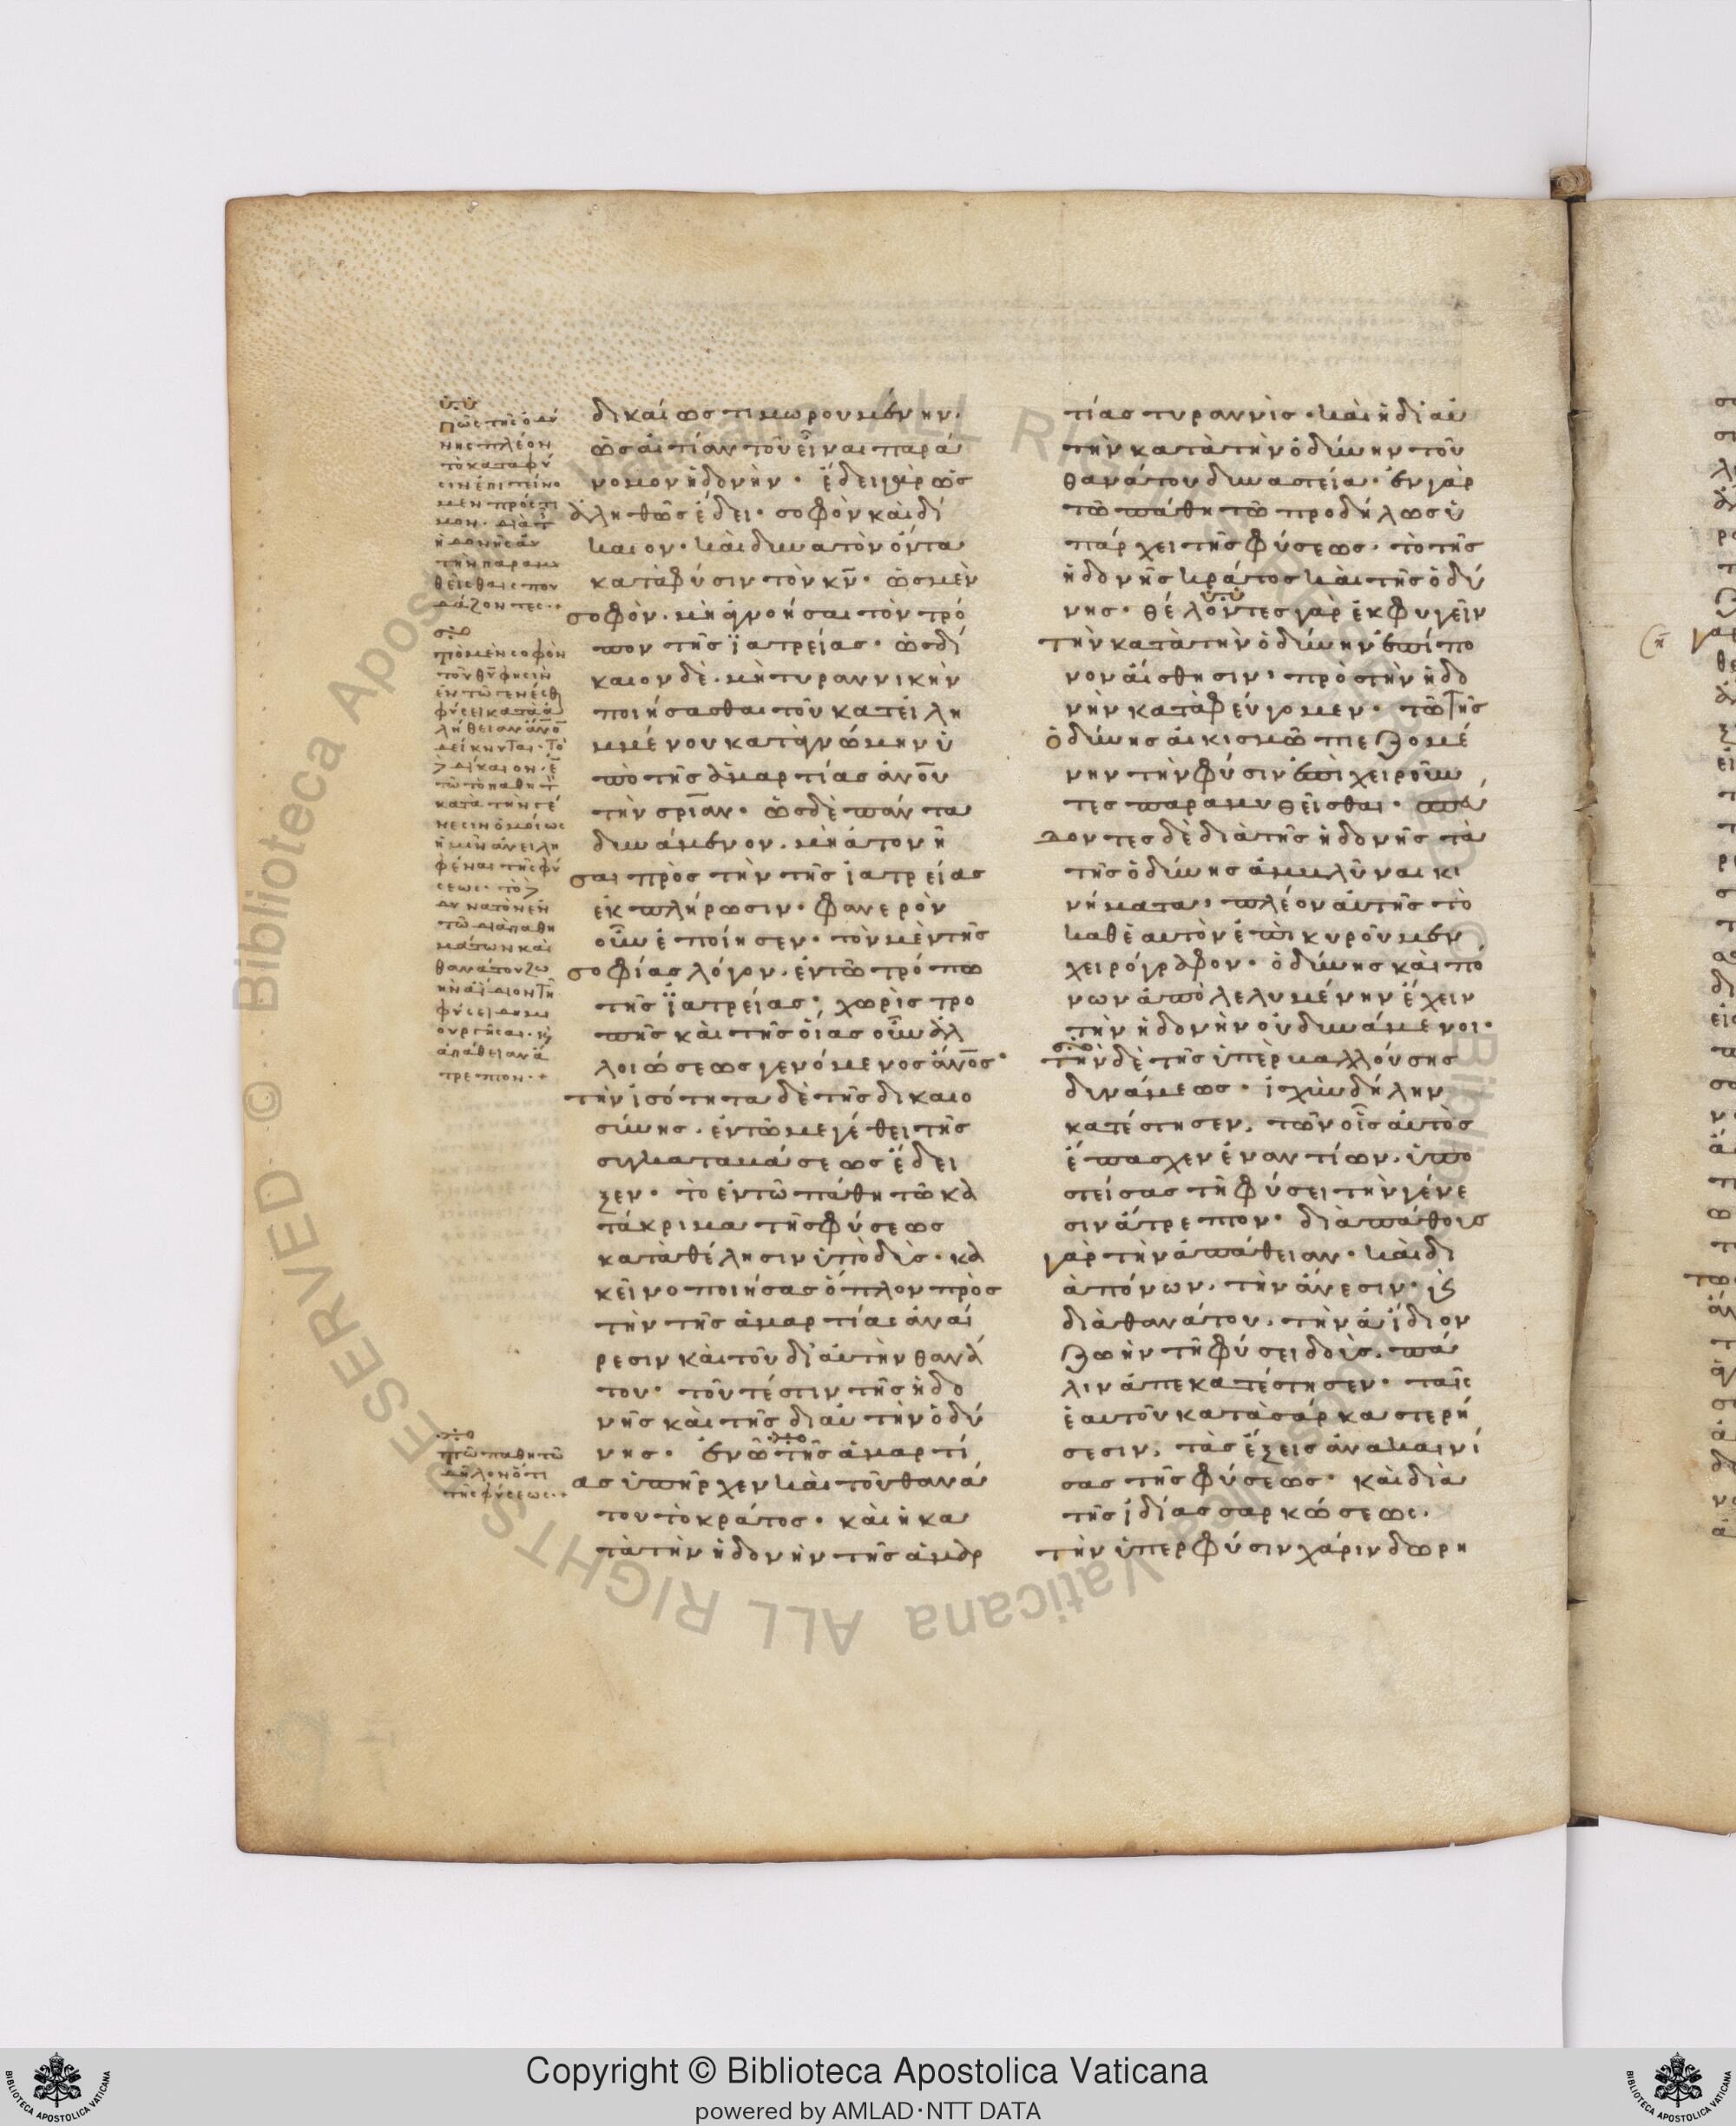 δικαίως τιμωρουμένην.
ὡς αἰτίαν τοῦ εἶναι παρά
νομον ἡδονήν· ἔδει γὰρ ὡς
ἀληθῶς ἔδει· σοφὸν καὶ δί
καιον· καὶ δυνατὸν ὄντα
κατὰ φύσιν τὸν κν· ὡς μὲν
σοφὸν. μὴ ἀγνοῆσαι τὸν τρό
πον τῆς ἰατρείας· ὡς δί
καιον δὲ. μὴ τυραννικὴν
ποιήσασθαι τοῦ κατειλη
μμένου κατὰ γνώμην ὑ
πὸ τῆς ἁμαρτίας ἀνου
τὴν σριαν· ὡς δὲ πάντα
δυνάμενον. μὴ ἀτονῆ
σαι πρὸς τὴν τῆς ἰατρείας
ἐκπλήρωσιν· φανερὸν
οὖν ἐποίησεν· τὸν μὲν τῆς
σοφίας λόγον. ἐν τῶ τρόπω
τῆς ἰατρείας· χωρὶς τρο
πῆς καὶ τῆς οἵας οὖν ἀλ
λοιώσεως γενόμενος ἄνος·
τὴν ἰσότητα δὲ τῆς δικαιο
σύνης. ἐν τῶ μεγέθει τῆς
συγκαταβάσεως ἔδει
ξεν· τὸ ἐν τῶ παθητῶ κα
τάκριμα τῆς φύσεως
κατὰ θέλησιν ὑποδύς· κα
κεῖνο ποιήσας ὅπλον πρὸς
τὴν τῆς ἁμαρτίας ἀναί
ρεσιν καὶ τοῦ δι' αὐτὴν θανά
του· τοῦτέστιν τῆς ἡδο
νῆς καὶ τῆς δι αὐτὴν ὀδύ
νης· ἐν ὧ τῆς ἁμαρτί
ας ὑπῆρχεν καὶ τοῦ θανά
του τὸ κράτος· καὶ ἡ κα
τὰ τὴν ἡδονὴν τῆς ἁμαρ
τίας τυραννὶς· καὶ ἡ δι' αὐ
τὴν κατὰ τὴν ὀδύνην τοῦ
θανάτου δυναστεία· ἐν γὰρ
τῶ παθητῶ προδήλως ὑ
πάρχει τῆς φύσεως· τὸ τῆς
ἡδονῆς κράτος καὶ τῆς ὀδύ
νης· θέλοντες γὰρ ἐκφυγεῖν
τὴν κατὰ τὴν ὀδύνην ἐπίπο
νον αἴσθησιν· πρὸς τὴν ἡδο
νὴν καταφεύγομεν· τῶ τῆς
ὀδύνης αἰκισμῶ πιεζομέ
νην τὴν φύσιν ἐπιχειροῦν
τες παραμυθεῖσθαι· σπεύ
δοντες δὲ διὰ τῆς ἡδονῆς τὰ
τῆς ὀδύνης ἀμβλῦναι κι
νήματα· πλέον αὐτῆς τὸ
καθ' ἑαυτὸν ἐπικυροῦμεν
χειρόγραφον· ὀδύνης καὶ πό
νων ἀπολελυμένην ἔχειν
τὴν ἡδονὴν οὐ δυνάμενοι·
τὴν δὲ τῆς ὑπερβαλλούσης
δυνάμεως· ἰσχὺν δήλην
κατέστησεν, τῶν οἷς αὐτὸς
ἔπασχεν ἐναντίων. ὑπο
στείσας τῆ φύσει τὴν γένε
σιν ἄτρεπτον· διὰ πάθους
γὰρ τὴν ἀπάθειαν· καὶ δι
ὰ πόνων. τὴν ἄνεσιν· κς
διὰ θανάτου. τὴν ἀΐδιον
ζωὴν τῆ φύσει δοὺς. πά
λιν ἀπεκατέστησεν· ταῖς
ἑαυτοῦ κατὰ σάρκα στερή
σεσιν, τὰς ἕξεις ἀνακαινί
σας τῆς φύσεως· καὶ διὰ
τῆς ἰδίας σαρκώσεως.
τὴν ὑπερ φύσιν χάριν δωρη
πῶς τῆς ὀδύ
νης πλέον
τὸ κατα φύ
σιν ἐπιτείνο
μεν πρόστι
μον· διὰ τ
ἡδονῆς αὐ
τὴν παραμυ
θεῖσθαι σπου
δάζοντες·+
τὸ μὲν σοφὸν
τοῦ θυ φησὶν
ἐν τῶ γενέσθ
φύσει κατὰ ἀ
λήθειαν ἄνο
δείκνυται· τὸ
δίκαιον· ἐ
τῶ τὸ παθητ
κατὰ τὴν γέ
νεσιν ὁμοίως
ἡμῖν ἀνειλη
φέναι τῆς φύ
σεως· τὸ
δυνατὸν ἐν
τῶ διὰ παθη
μάτων καὶ
θανάτου ζω
ὴν ἀΐδιον τῆ
φύσει δημι
ουργῆσαι· κ
ἀπάθειαν ἄ
τρεπτον·+
τῶ παθητῶ
δηλονότι
τῆς φύσεως·+
Copyright © Biblioteca Apostolica Vaticana
powered by AMLAD·NTT DATA